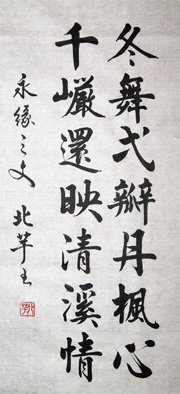 冬舞弌瓣丹楓心
千巗還映清溪情
永緣之文 北